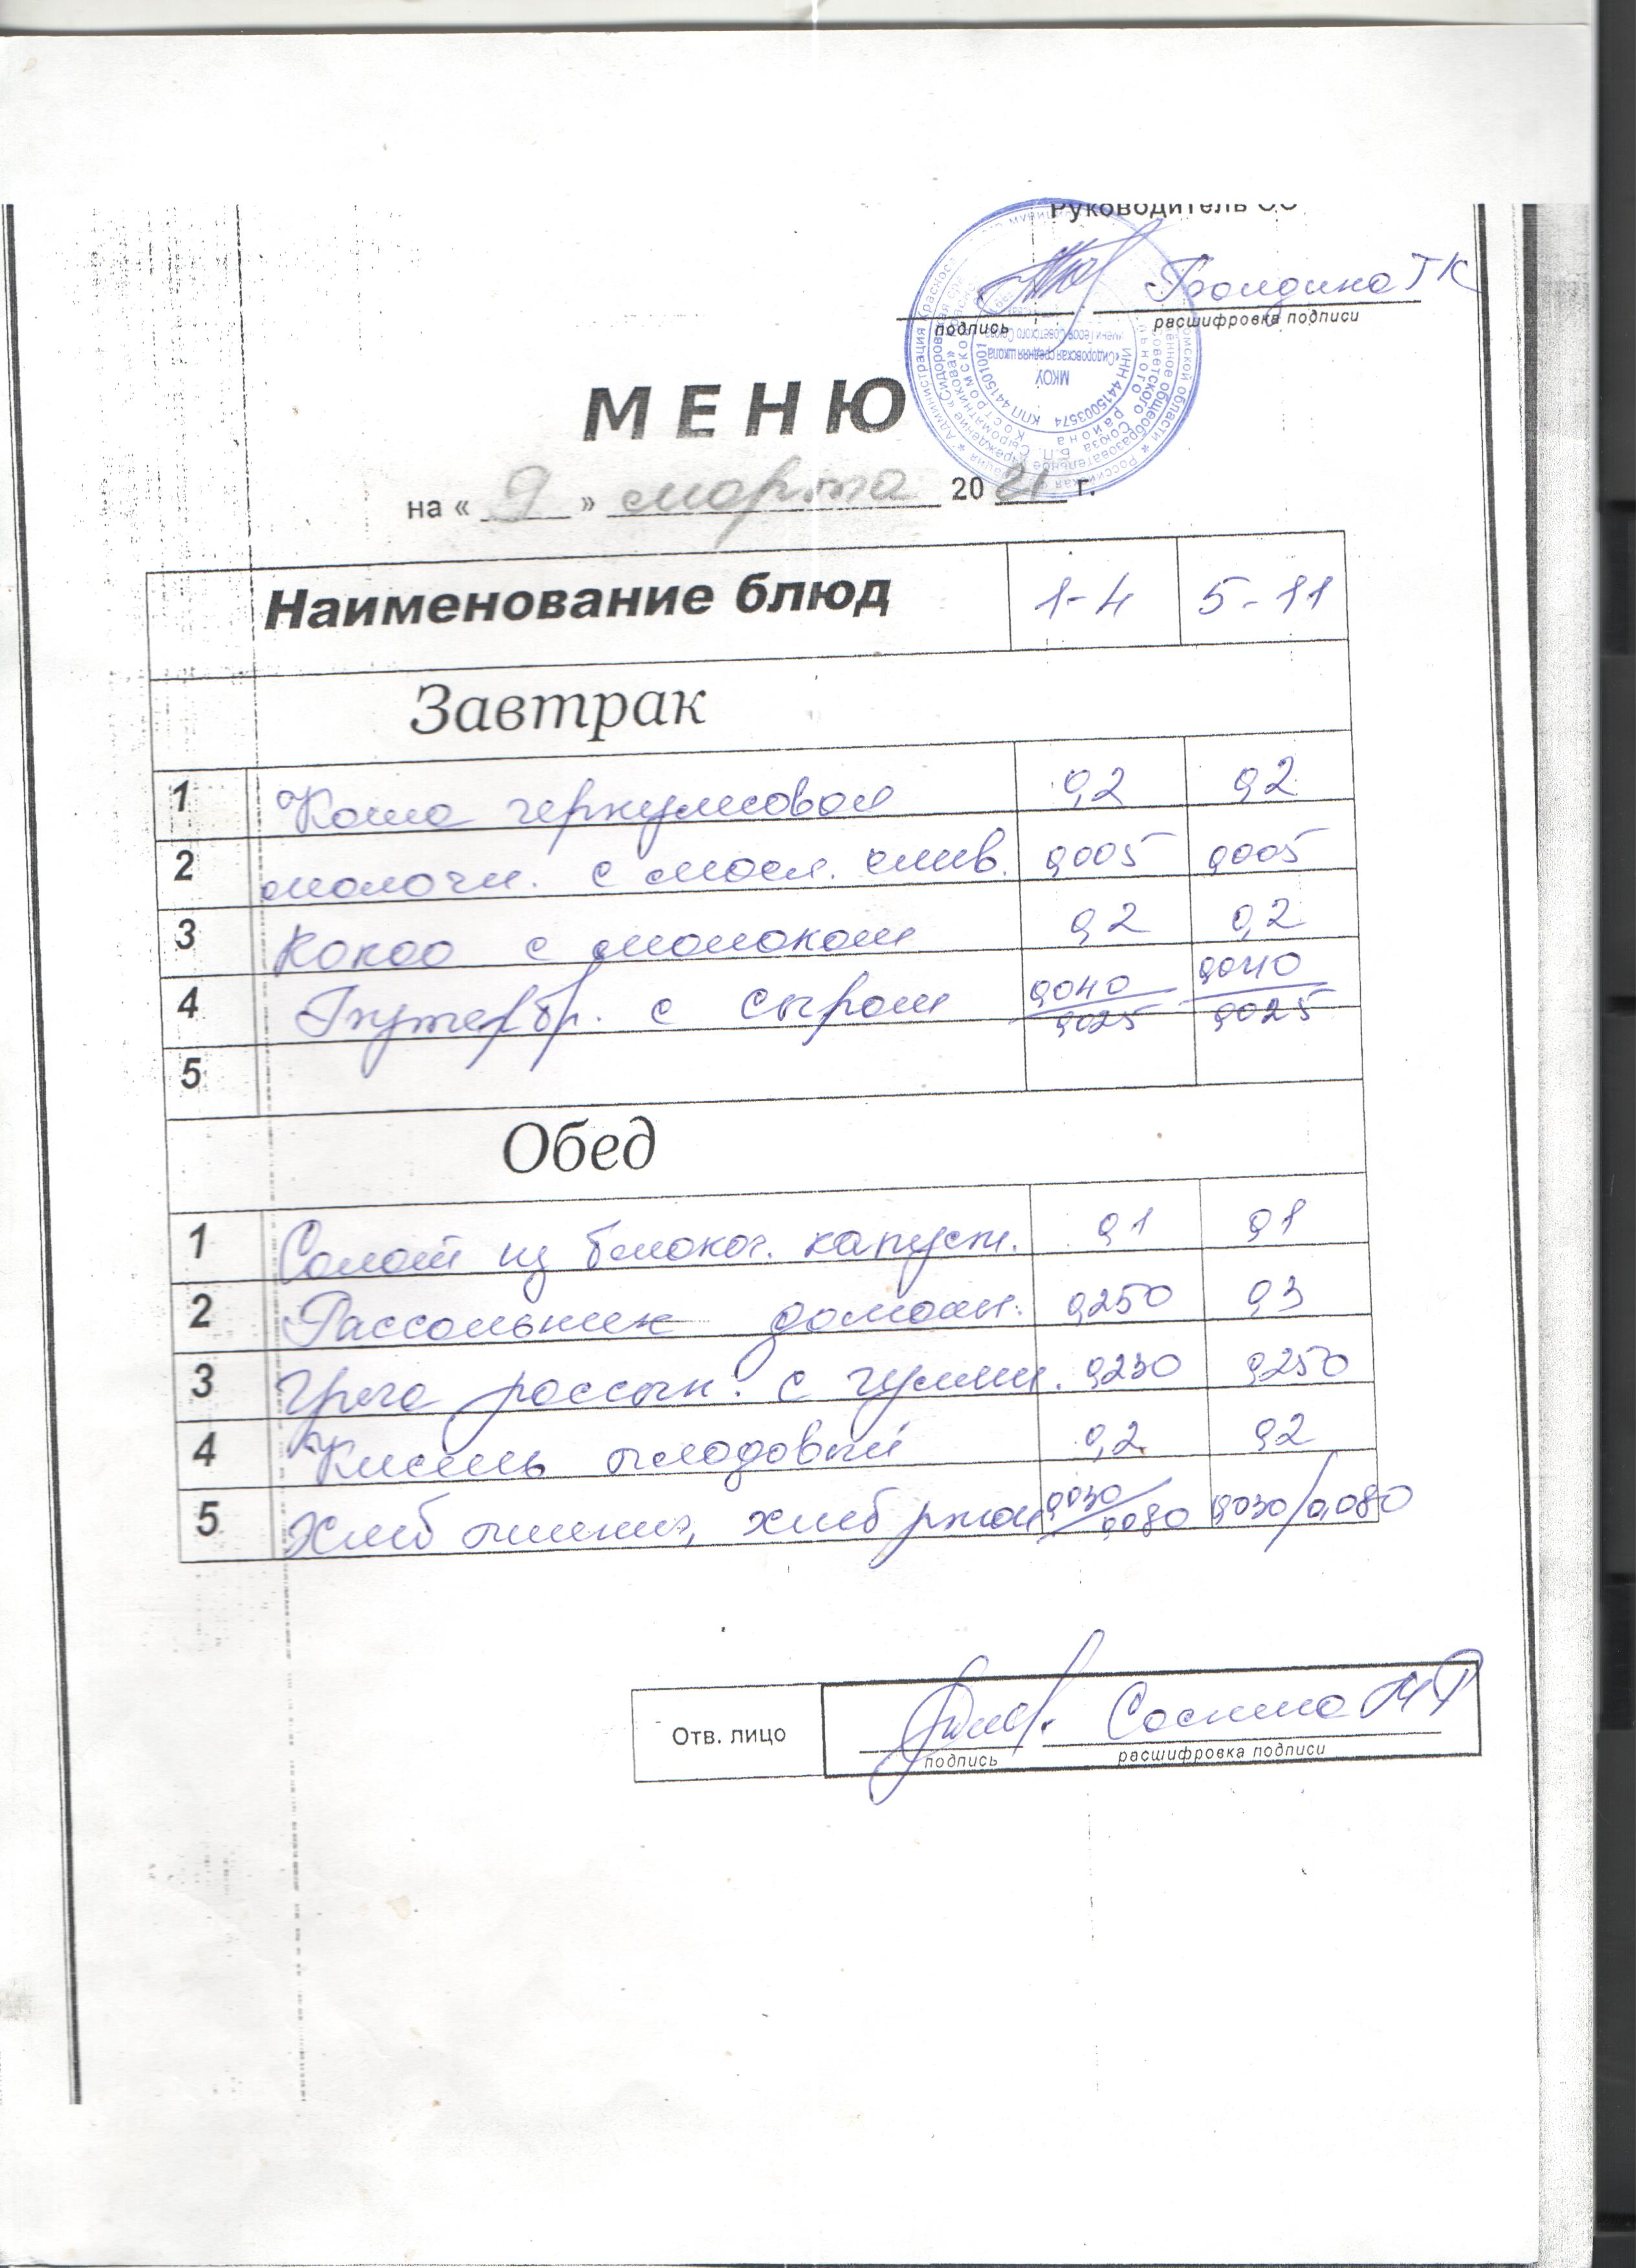 Руководитель ОО
подпись
расшифровка подписи
МКОУ
«Сидоровская средняя школа
ИНН 4415003574 КПП 441501001
МЕНЮ
на « 9 » марта 20 21 г.
Наименование блюд 1-4 5-11
Завтрак
1 Каша геркулесовая 0,2 0,2
2 молочн. с масл. слив. 0,005 0,005
3 Какао с молоком 0,2 0,2
4 Бутербр. с сыром 0,040/0,025 0,040/0,025
5
Обед
1 Салат из белокоч. капуст. 0,1 0,1
2 Рассольник домашн. 0,250 0,3
3 Греча рассып. с гуляш. 0,230 0,250
4 Кисель плодовый 0,2 0,2
5 Хлеб пшенич, хлеб ржан 0,030/0,080 0,030/0,080
Отв. лицо
Соснина
подпись расшифровка подписи